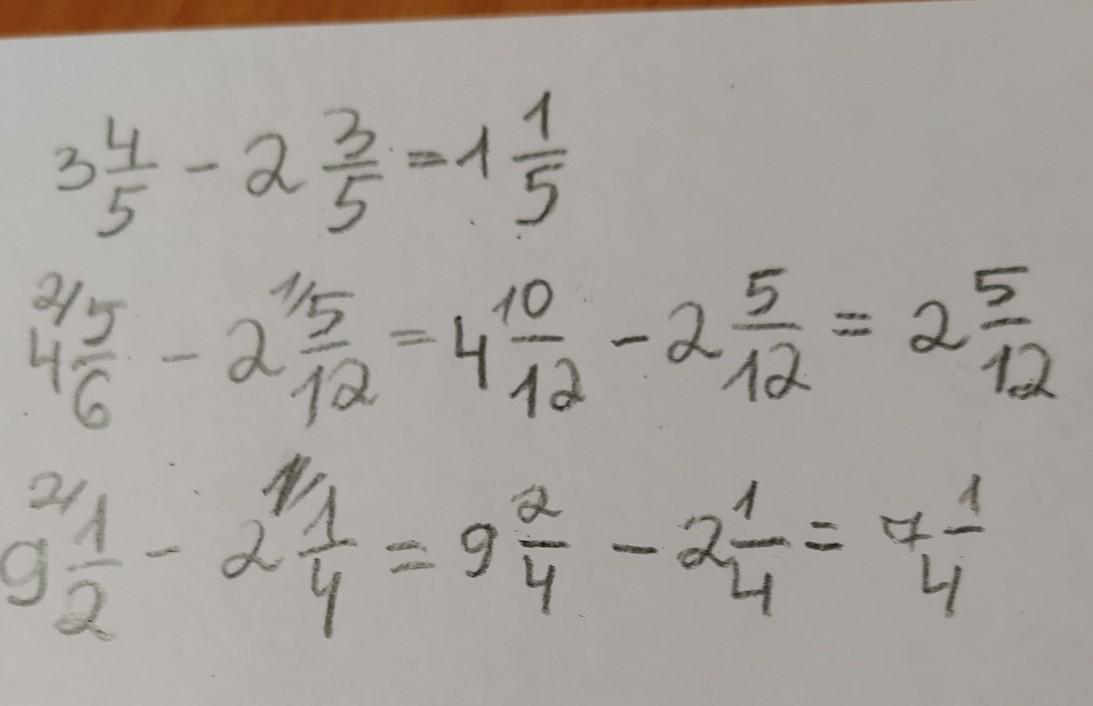 3 4/5 - 2 3/5 = 1 1/5
4 2/ 5/6 - 2 1/ 5/12 = 4 10/12 - 2 5/12 = 2 5/12
9 2/ 1/2 - 2 1/ 1/4 = 9 2/4 - 2 1/4 = 7 1/4